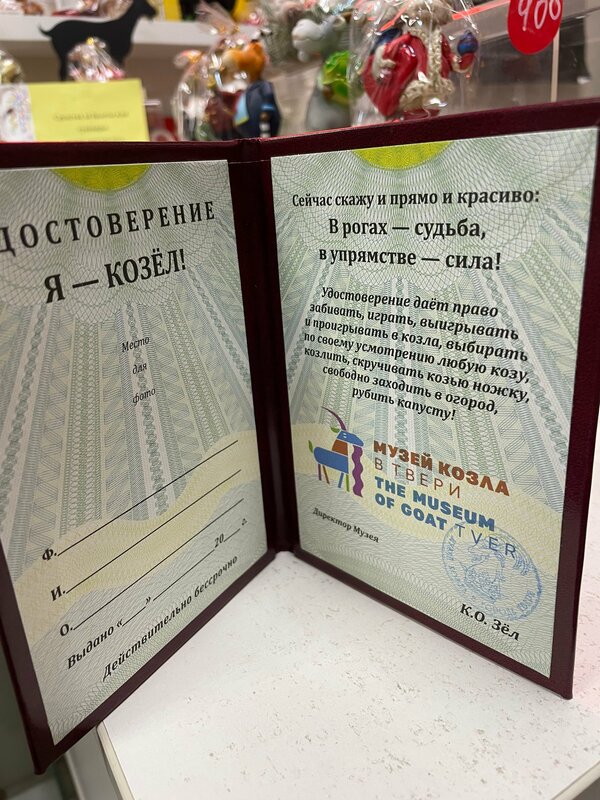 900
ДОСТОВЕРЕНИЕ
Я — КОЗЁЛ!
Место
для
фото
Ф.
И.
О.
Выдано «___» ________ 20___ г.
Действительно бессрочно
Сейчас скажу и прямо и красиво:
В рогах — судьба,
в упрямстве — сила!
Удостоверение даёт право
забивать, играть, выигрывать
и проигрывать в козла, выбирать
по своему усмотрению любую козу,
козлить, скручивать козью ножку,
свободно заходить в огород,
рубить капусту!
МУЗЕЙ КОЗЛА
В ТВЕРИ
THE MUSEUM
OF GOAT TVER
Директор Музея
К.О. Зёл